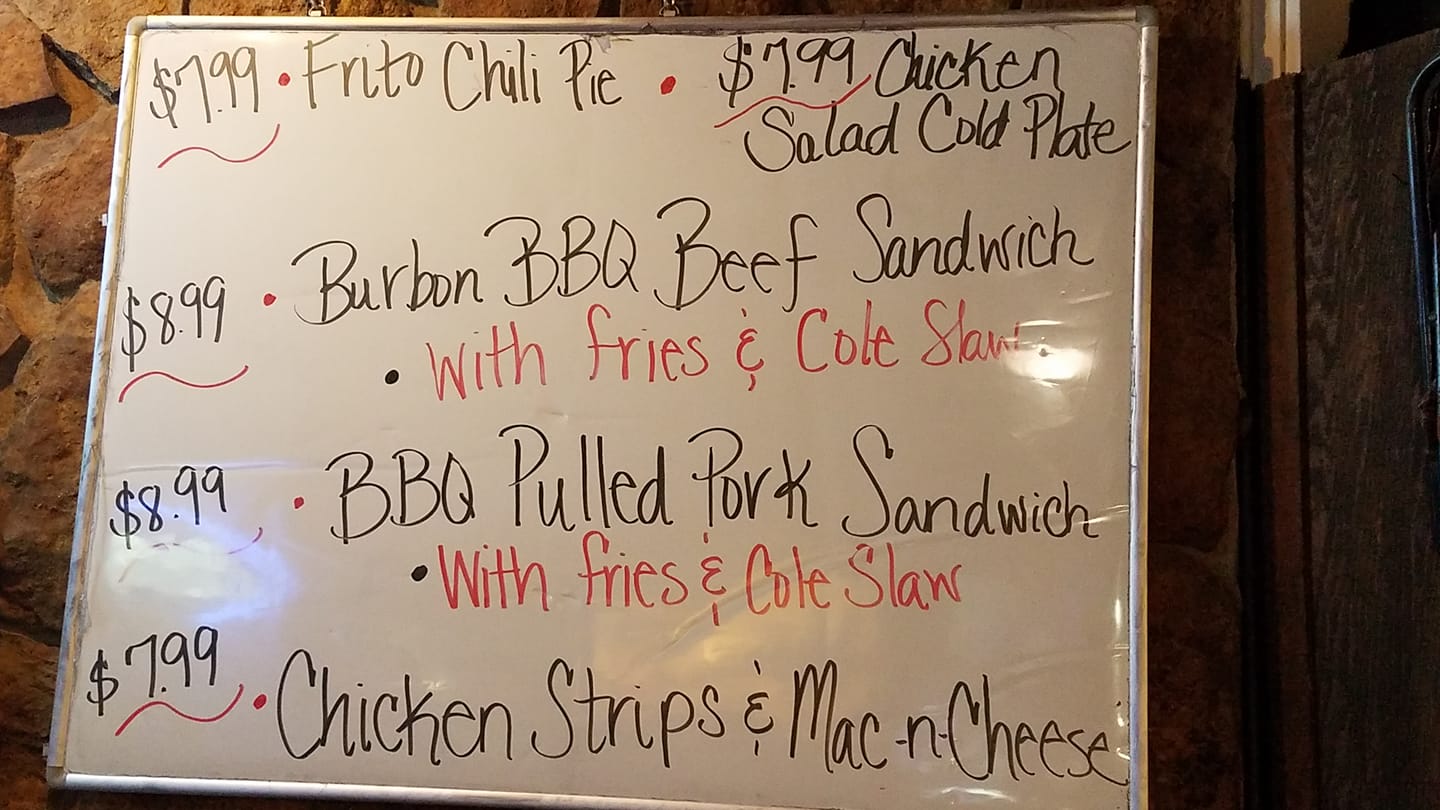 $7.99 • Frito Chili Pie • $7.99 Chicken
Salad Cold Plate
$8.99 • Burbon BBQ Beef Sandwich
• With fries & Cole Slaw
$8.99 • BBQ Pulled Pork Sandwich
• With fries & Cole Slaw
$7.99 • Chicken Strips & Mac-n-Cheese